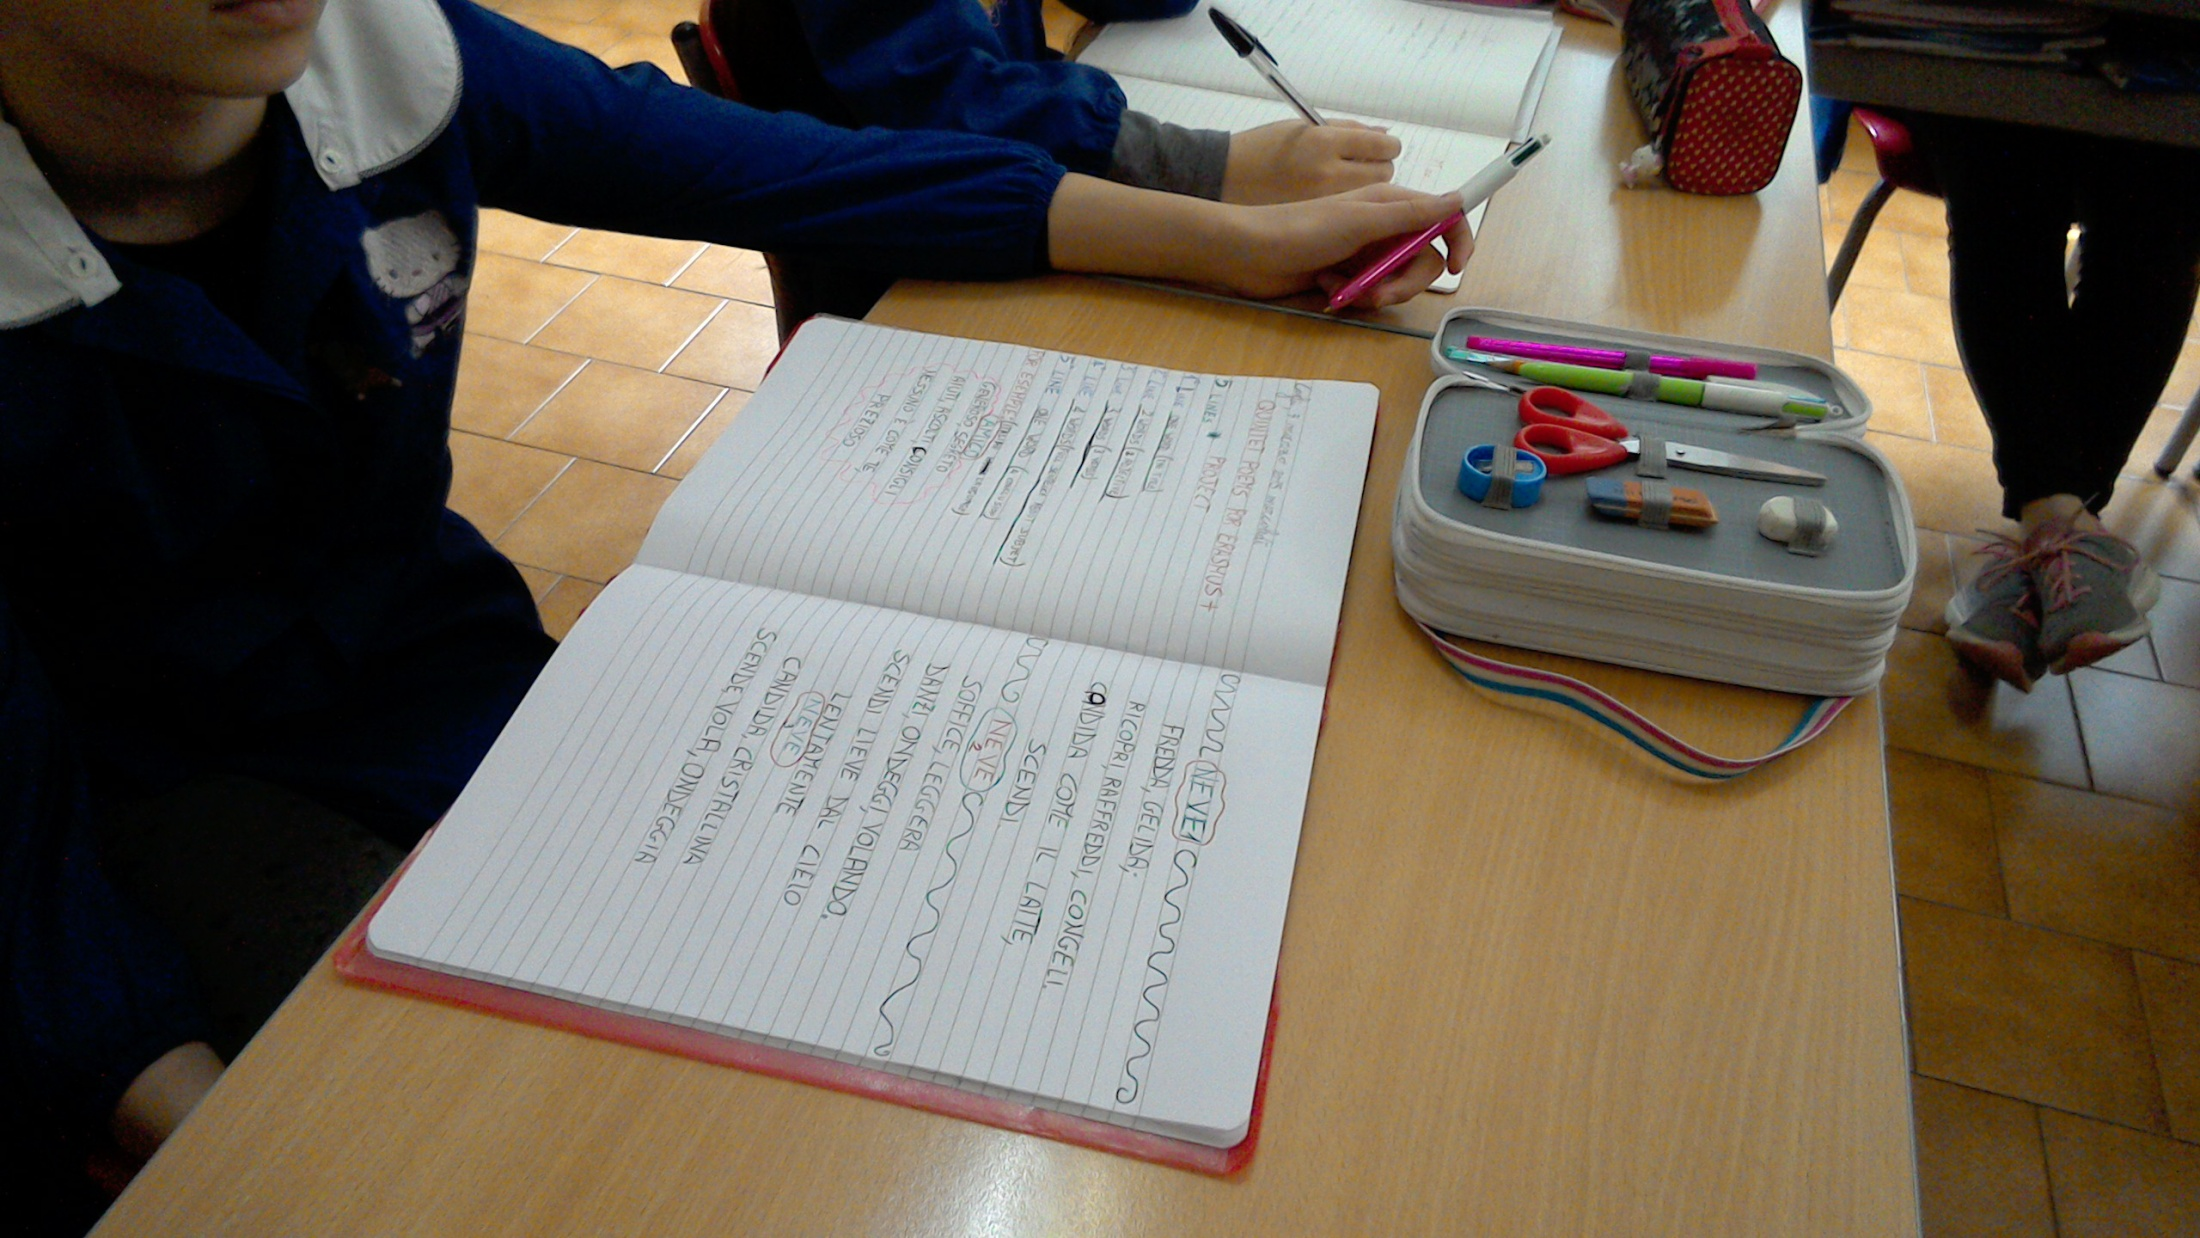 QUINTET POEMS FOR ERASMUS +
PROJECT
5 LINES
LINE ONE WORD
LINE 2 WORDS
LINE 3 WORDS
LINE 4 WORDS
LINE ONE WORD
PER ESEMPIO
AMICO
GENEROSO, SEGRETO
AIUTI, ASCOLTI, CONSIGLI
NESSUNO È COME TE,
PREZIOSO
NEVE
FREDDA, GELIDA;
RICOPRI, RAFFREDDI, CONGELI.
CANDIDA COME IL LATTE,
SCENDI.
NEVE 2
SOFFICE, LEGGGERA
DANZI, ONDEGGI, VOLANDO.
SCENDI LIEVE DAL CIELO
LENTAMENTE
NEVE
CANDIDA, CRISTALLINA
SCENDE, VOLA, ONDEGGIA